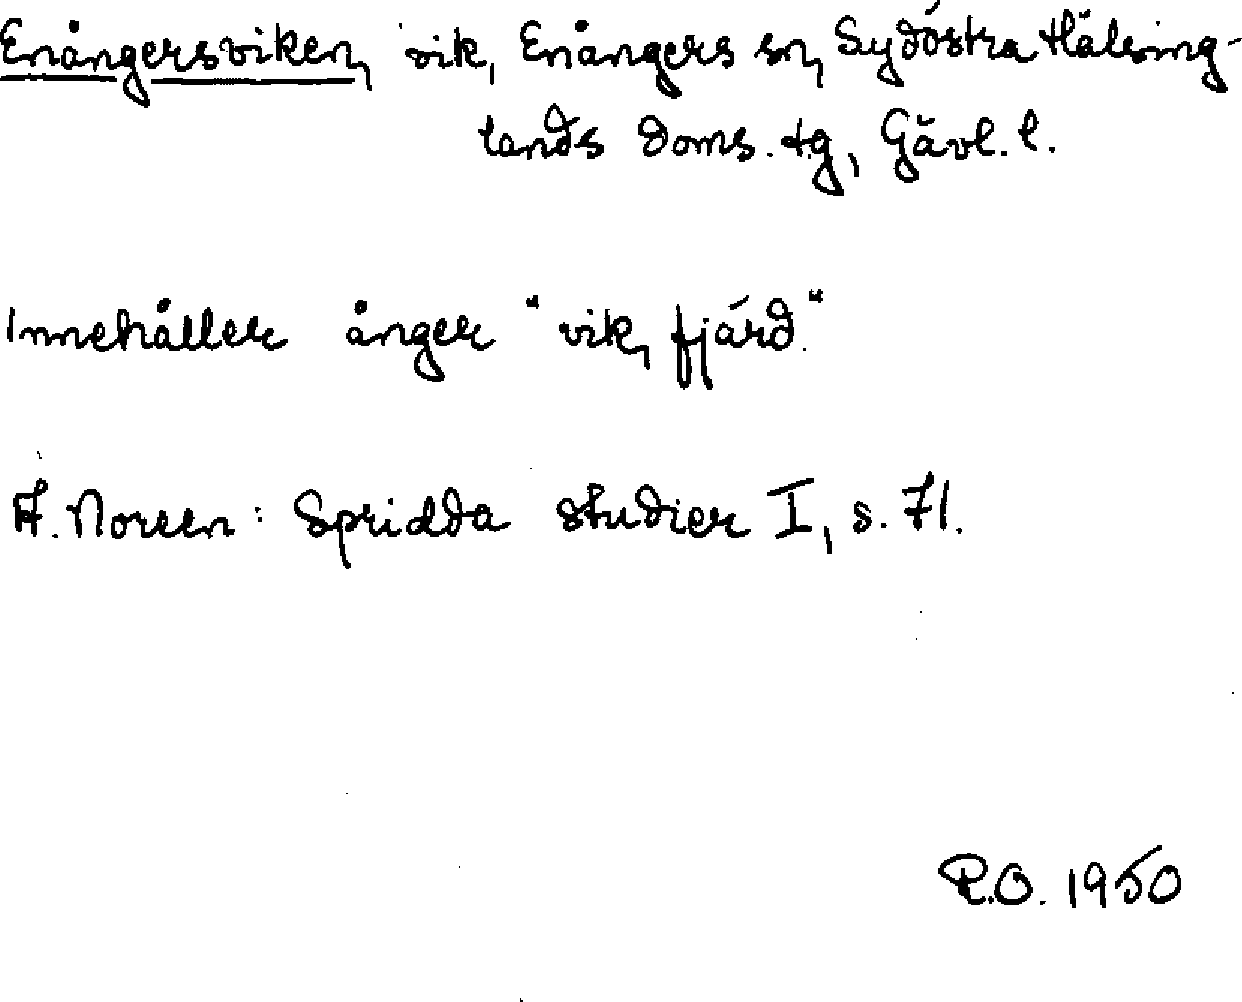 Enångersviken, vik, Enångers sn, Sydöstra Hälsing-
lands doms. tg, Gävl. l.
Innehåller ånger "vik, fjärd."
A. Noreen: Spridda studier I, s. 71.
R.O. 1950